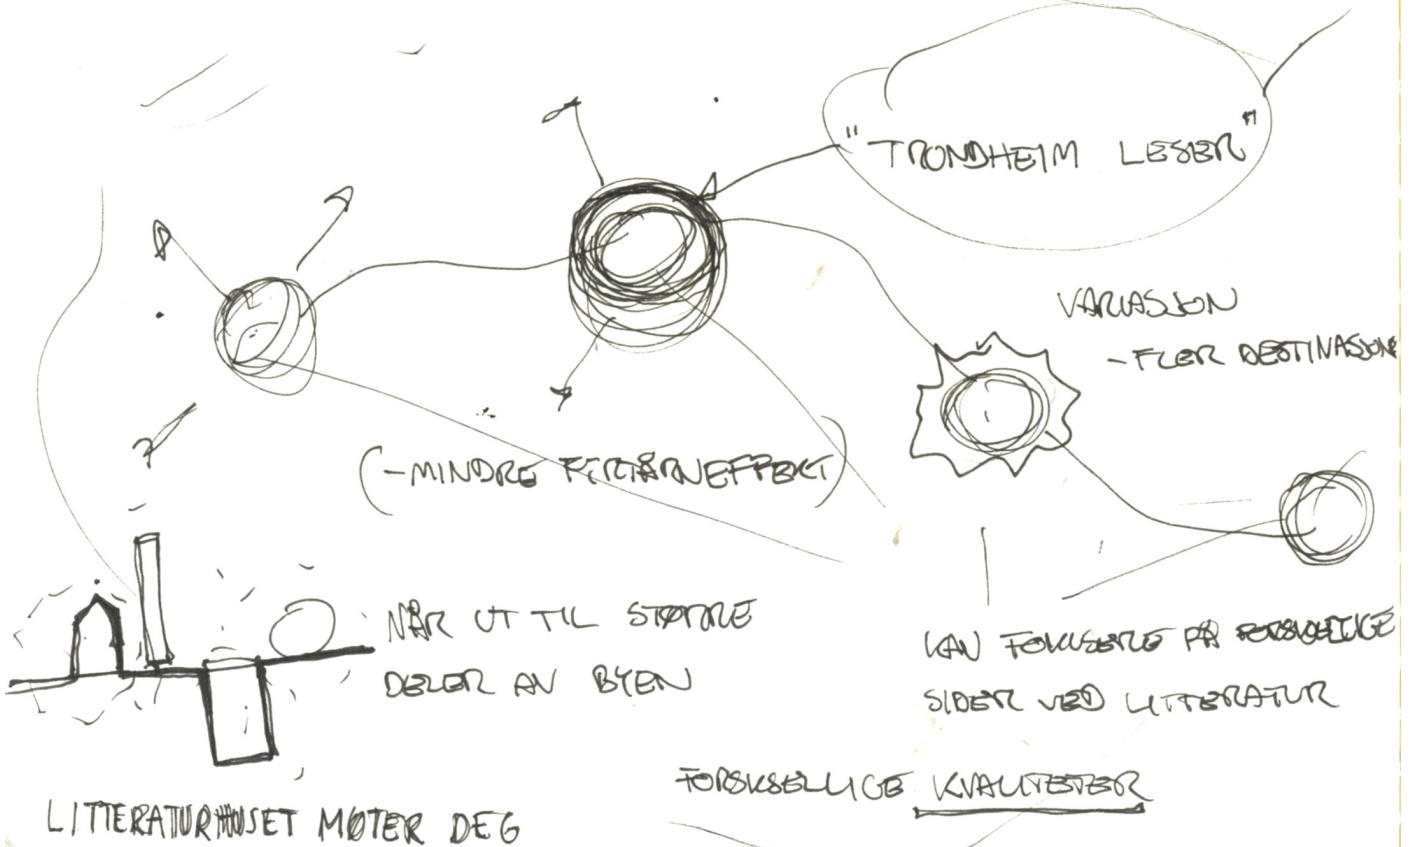 "TRONDHEIM LESER"
VARIASJON
- FLER DESTINASJON
(- MINDRE FYRTÅRNEFFEKT)
NÅR UT TIL STØRRE
DELER AV BYEN
KAN FOKUSERE PÅ FORSKJELLIGE
SIDER VED LITTERATUR
FORSKJELLIGE KVALITETER
LITTERATURHUSET MØTER DEG